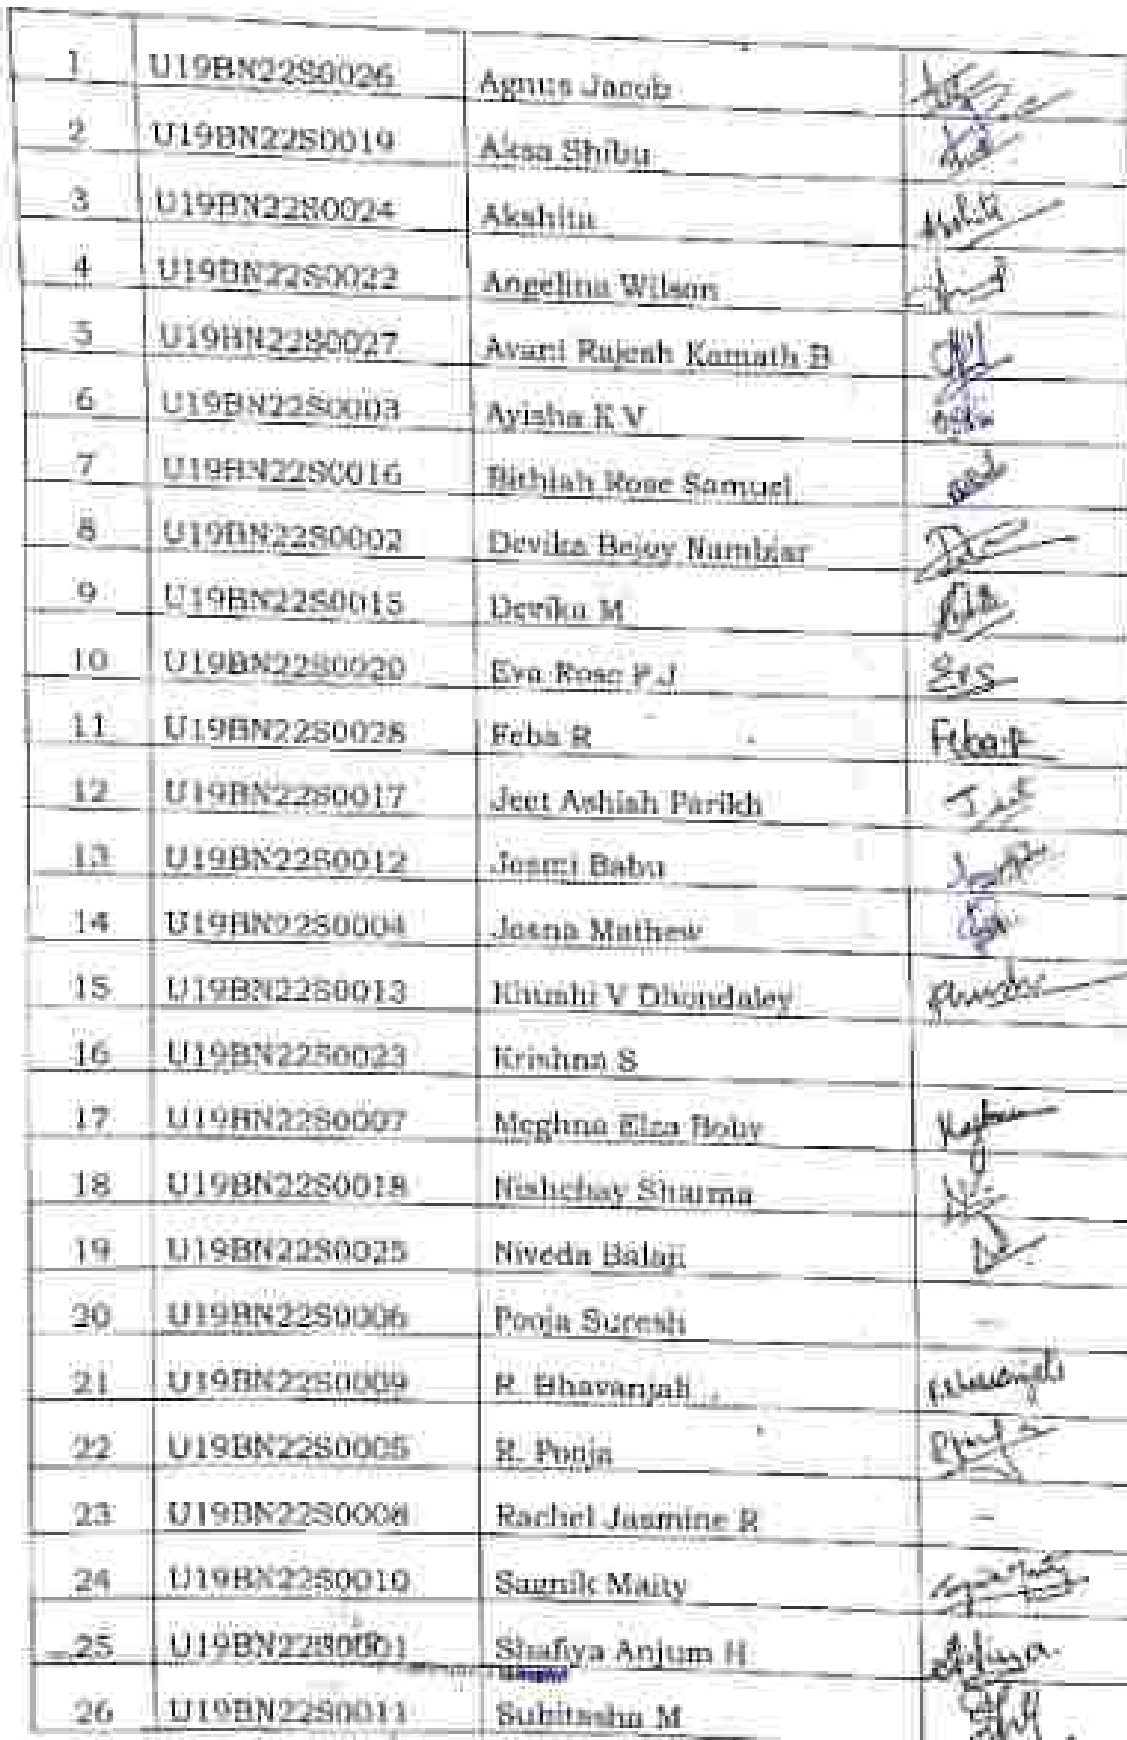 1 U19BN22S0026 Agnus Jacob
2 U19BN22S0019 Aksa Shibu
3 U19BN22S0024 Akshita
4 U19BN22S0022 Angelina Wilson
5 U19BN22S0027 Avani Rajesh Kamath B
6 U19BN22S0003 Ayisha K V
7 U19BN22S0016 Bithiah Rose Samuel
8 U19BN22S0002 Devika Bejoy Nambiar
9 U19BN22S0015 Devika M
10 U19BN22S0020 Eva Rose P J Ers
11 U19BN22S0028 Feba R Feba.R
12 U19BN22S0017 Jeet Ashish Parikh Jeet
13 U19BN22S0012 Josmi Babu
14 U19BN22S0004 Josna Mathew
15 U19BN22S0013 Khushi V Dhondaley
16 U19BN22S0023 Krishna S
17 U19BN22S0007 Meghna Elza Boby
18 U19BN22S0018 Nishchay Sharma
19 U19BN22S0025 Niveda Balaji
20 U19BN22S0006 Pooja Suresh -
21 U19BN22S0009 R. Bhavanjali
22 U19BN22S0005 R. Pooja
23 U19BN22S0008 Rachel Jasmine R -
24 U19BN22S0010 Sagnik Maity
25 U19BN22S0001 Shafiya Anjum H
26 U19BN22S0011 M